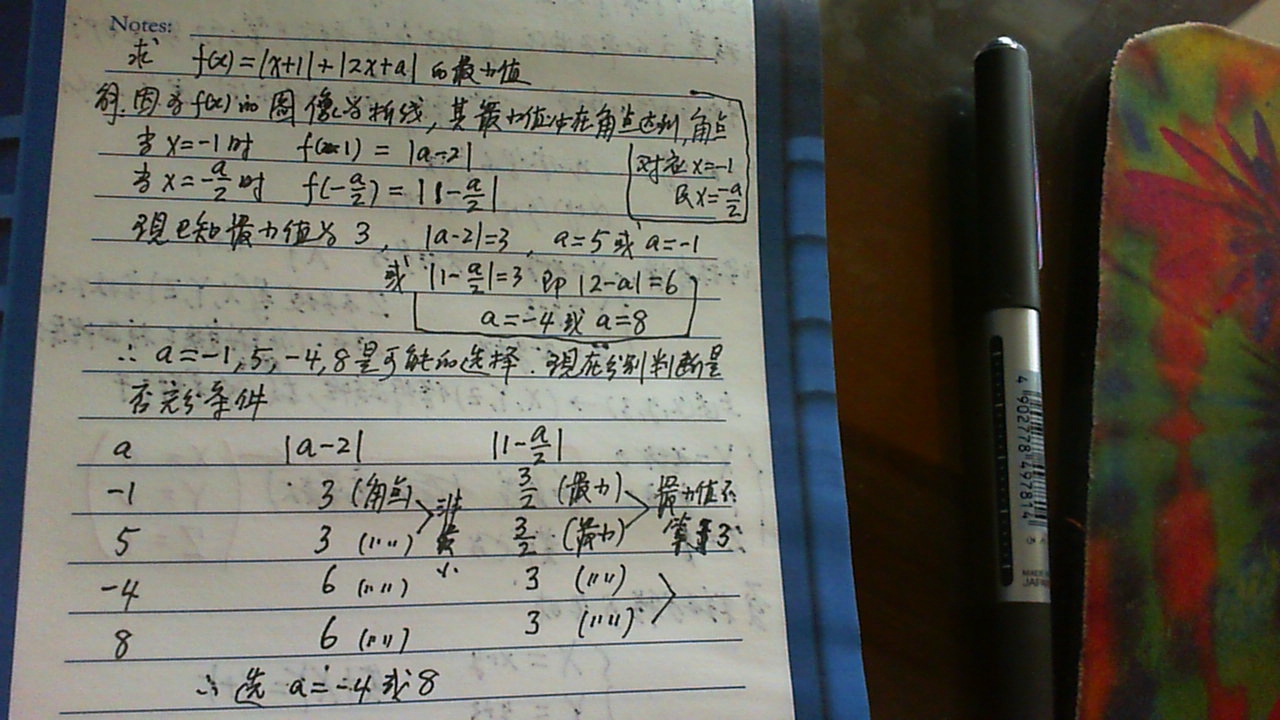 Notes:
求 f(x)=|x+1|+|2x+a| 的最小值
解:因为f(x)的图像为折线,其最小值必在角点达到,角点
对应x=-1
及x=-a/2
当 x=-1时 f(-1)=|a-2|
当 x=-a/2时 f(-a/2)=|1-a/2|
现已知最小值为 3, |a-2|=3, a=5或a=-1
或 |1-a/2|=3 即 |2-a|=6
a=-4 或 a=8
∴ a=-1,5,-4,8是可能的选择.现在分别判断是
否充分条件
a |a-2| |1-a/2|
-1 3 (角点) 非最小 3/2 (最小) 最小值不等于3
5 3 (〃〃) 3/2 (最小)
-4 6 (〃〃) 3 (〃〃)
8 6 (〃〃) 3 (〃〃)
∴ 选 a=-4 或 8
4 902778 497814
MADE IN
JAPAN